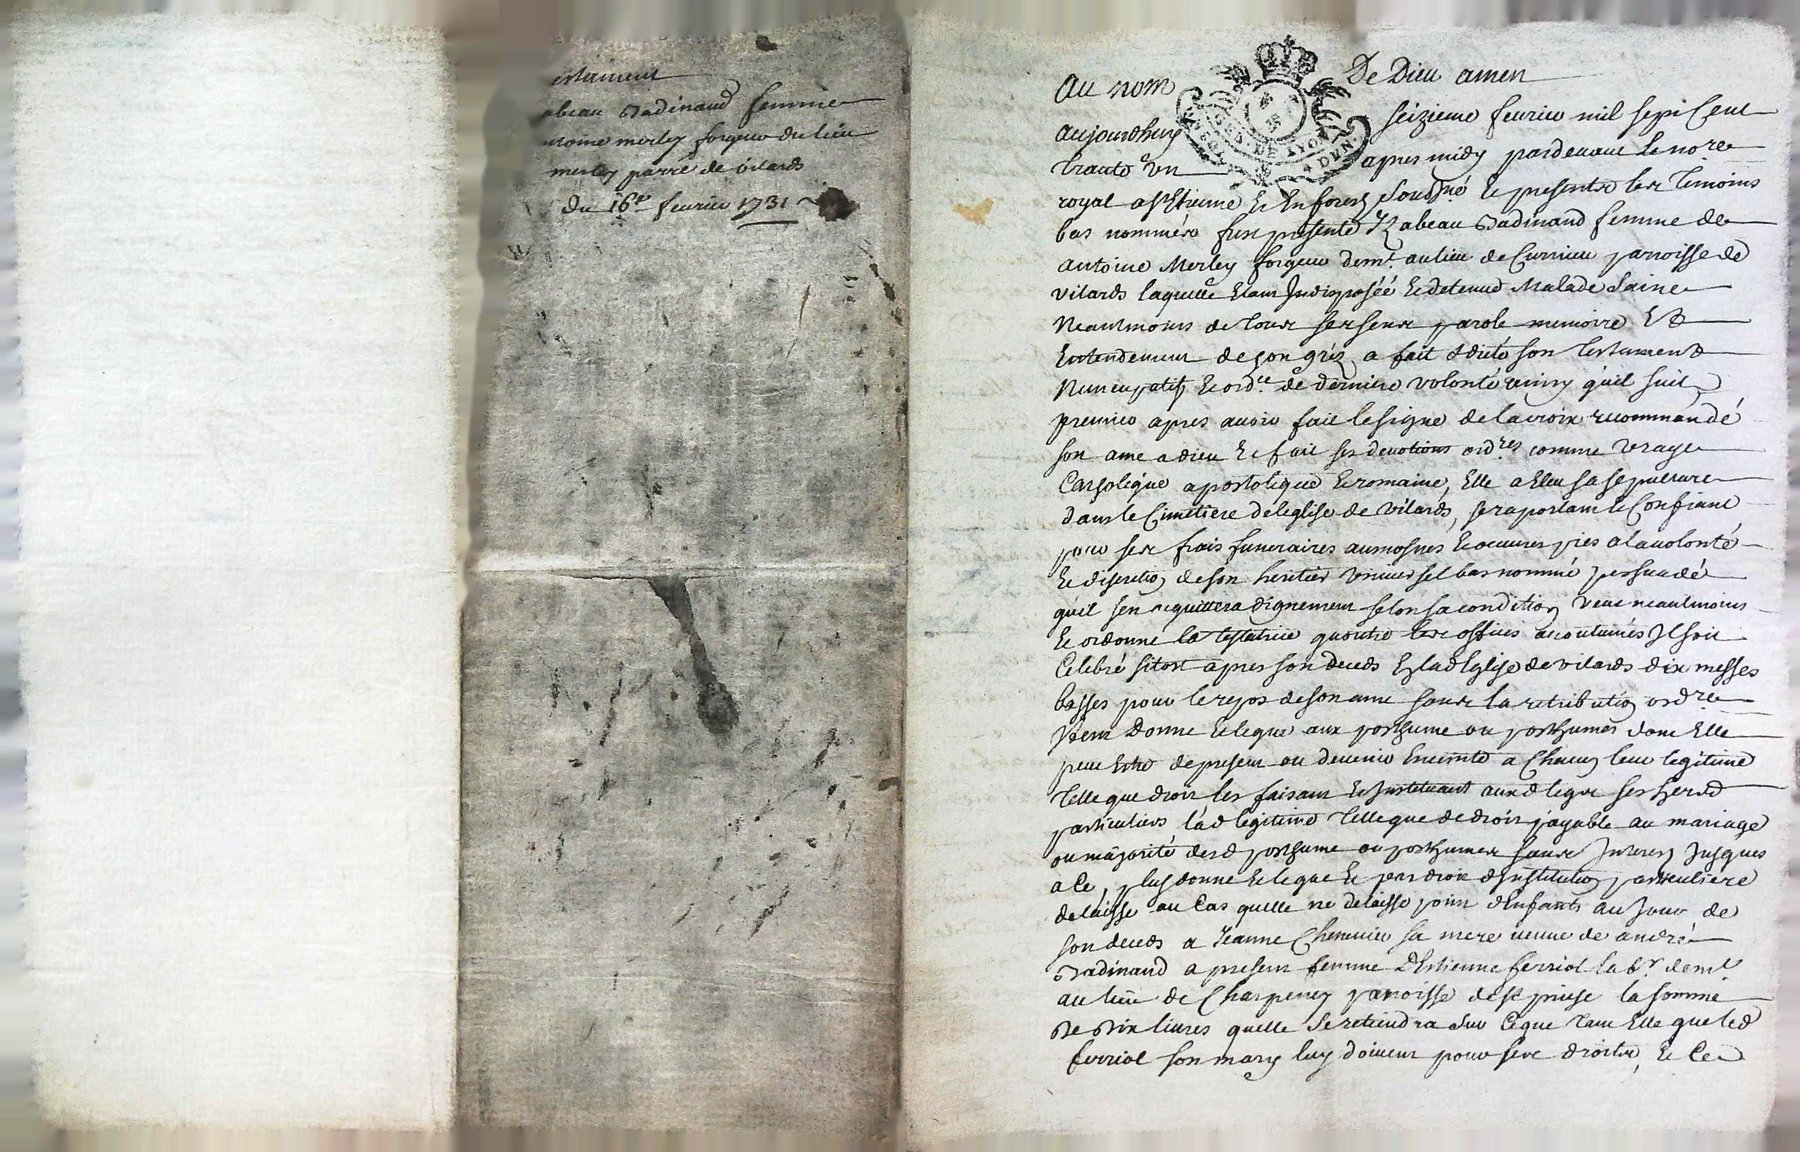 estament
abeau Dadinaud femme
ntoine merley forgeur du lieu
merley parre de vilards
du 16e fevrier 1731
Au nom De Dieu amen
GED. DE LYON
DEN
aujourdhuy seizieme fevrier mil sept Cent
trante un apres midy pardevant le nore
royal a St Etienne et en forest soussné et presents les temoins
bas nommés fust presente Yzabeau Dadinaud femme de
antoine Merley forgeur demt. au lieu de Curnieu parroisse de
vilards laquelle etant Indisposéé et detenue Malade saine
Neantmoins de tous ses sens parole memoire Et
Entendement de son gréz a fait & dicté son testament
Nuncupatif et ordce de derniere volonté ainsy quil suit
premier apres avoir fait le signe de la croix recommandé
son ame a dieu et fait ses devotions ordres comme vraye
Catholique apostolique et romaine, Elle a Eleu sa sepulture
dans le Cimetiere de leglise de vilards, se raportant et Confiant
pour ses frais funeraires aumosnes et oeuvres pies a la volonté
et discretion de son heritier universel bas nommé persuadé
quil sen acquittera dignement selon sa condition veut neantmoins
et ordonne la testatrice quoutre les offices acoutumés Il soit
Celebré sitost apres son deceds En lad Eglise de vilards dix messes
basses pour le repos de son ame sous la retribution ordre
Item Donne et legue aux posthume ou posthumes dont Elle
peut Estre de present ou devenir Enceinte a Chacun leur legitime
telle que droit les faisant et Instituant aud legat ses herers
particuliers lad legitime telle que de droit payable au mariage
ou majorité desd posthume ou posthumes sans Interest Jusques
a Ce, plus donne et legue et par droit dInstitution particuliere
delaisse au Cas quelle ne delaisse point dEnfants au Jour de
son deceds a Jeanne Chenevier sa mere veuve de andré
Dadinaud a present femme dEstienne ferriol labr. demt
au lieu de Charpeney parroisse de st priest la somme
De Dix livres quelle se retiendra sur Ce que tant Elle que led
ferriol son mary luy doivent pour sve droits, et Ce